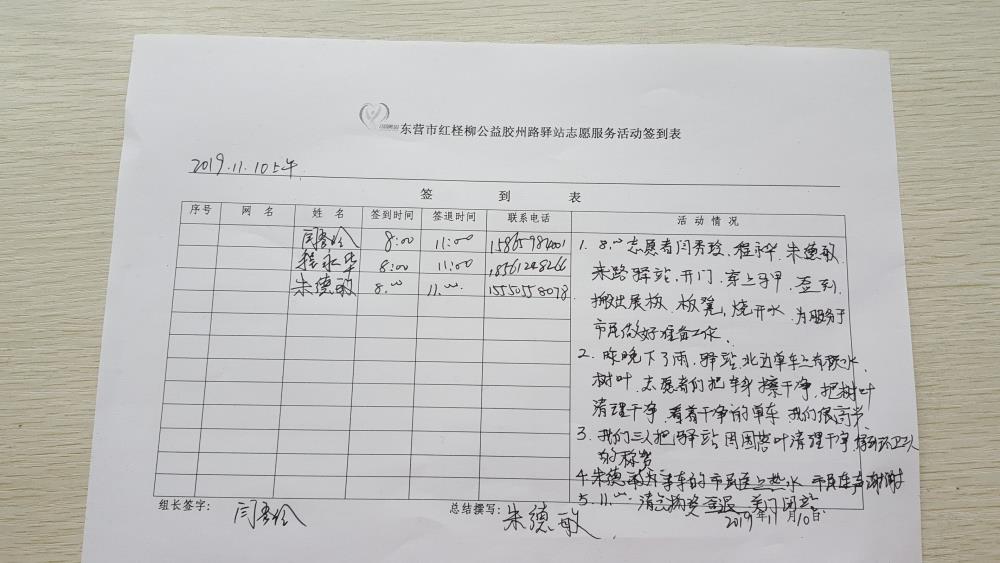 东营市红柽柳公益胶州路驿站志愿服务活动签到表
2019.11.10上午
签到表
序号 网名 姓名 签到时间 签退时间 联系电话 活动情况
闫秀玲 8:00 11:00
程永华 8:00 11:00
朱德敏 8:00 11:00 15550558078
1. 8:00志愿者闫秀玲、程永华、朱德敏
来路驿站.开门.穿上马甲.签到.
搬出展板.板凳,烧开水.为服务于
市民做好准备工作.
2.昨晚下了雨,驿站北边单车上有积水
树叶.志愿者们把车身擦干净.把树叶
清理干净.看着干净的单车.我们很高兴.
3.我们三人把驿站周围落叶清理干净,环卫工人
的称赞
4.朱德敏为的市民送上热水 市民连声谢谢
5.11:00清点物资签退关门闭站
组长签字: 闫秀玲 总结撰写: 朱德敏 2019年11月10日